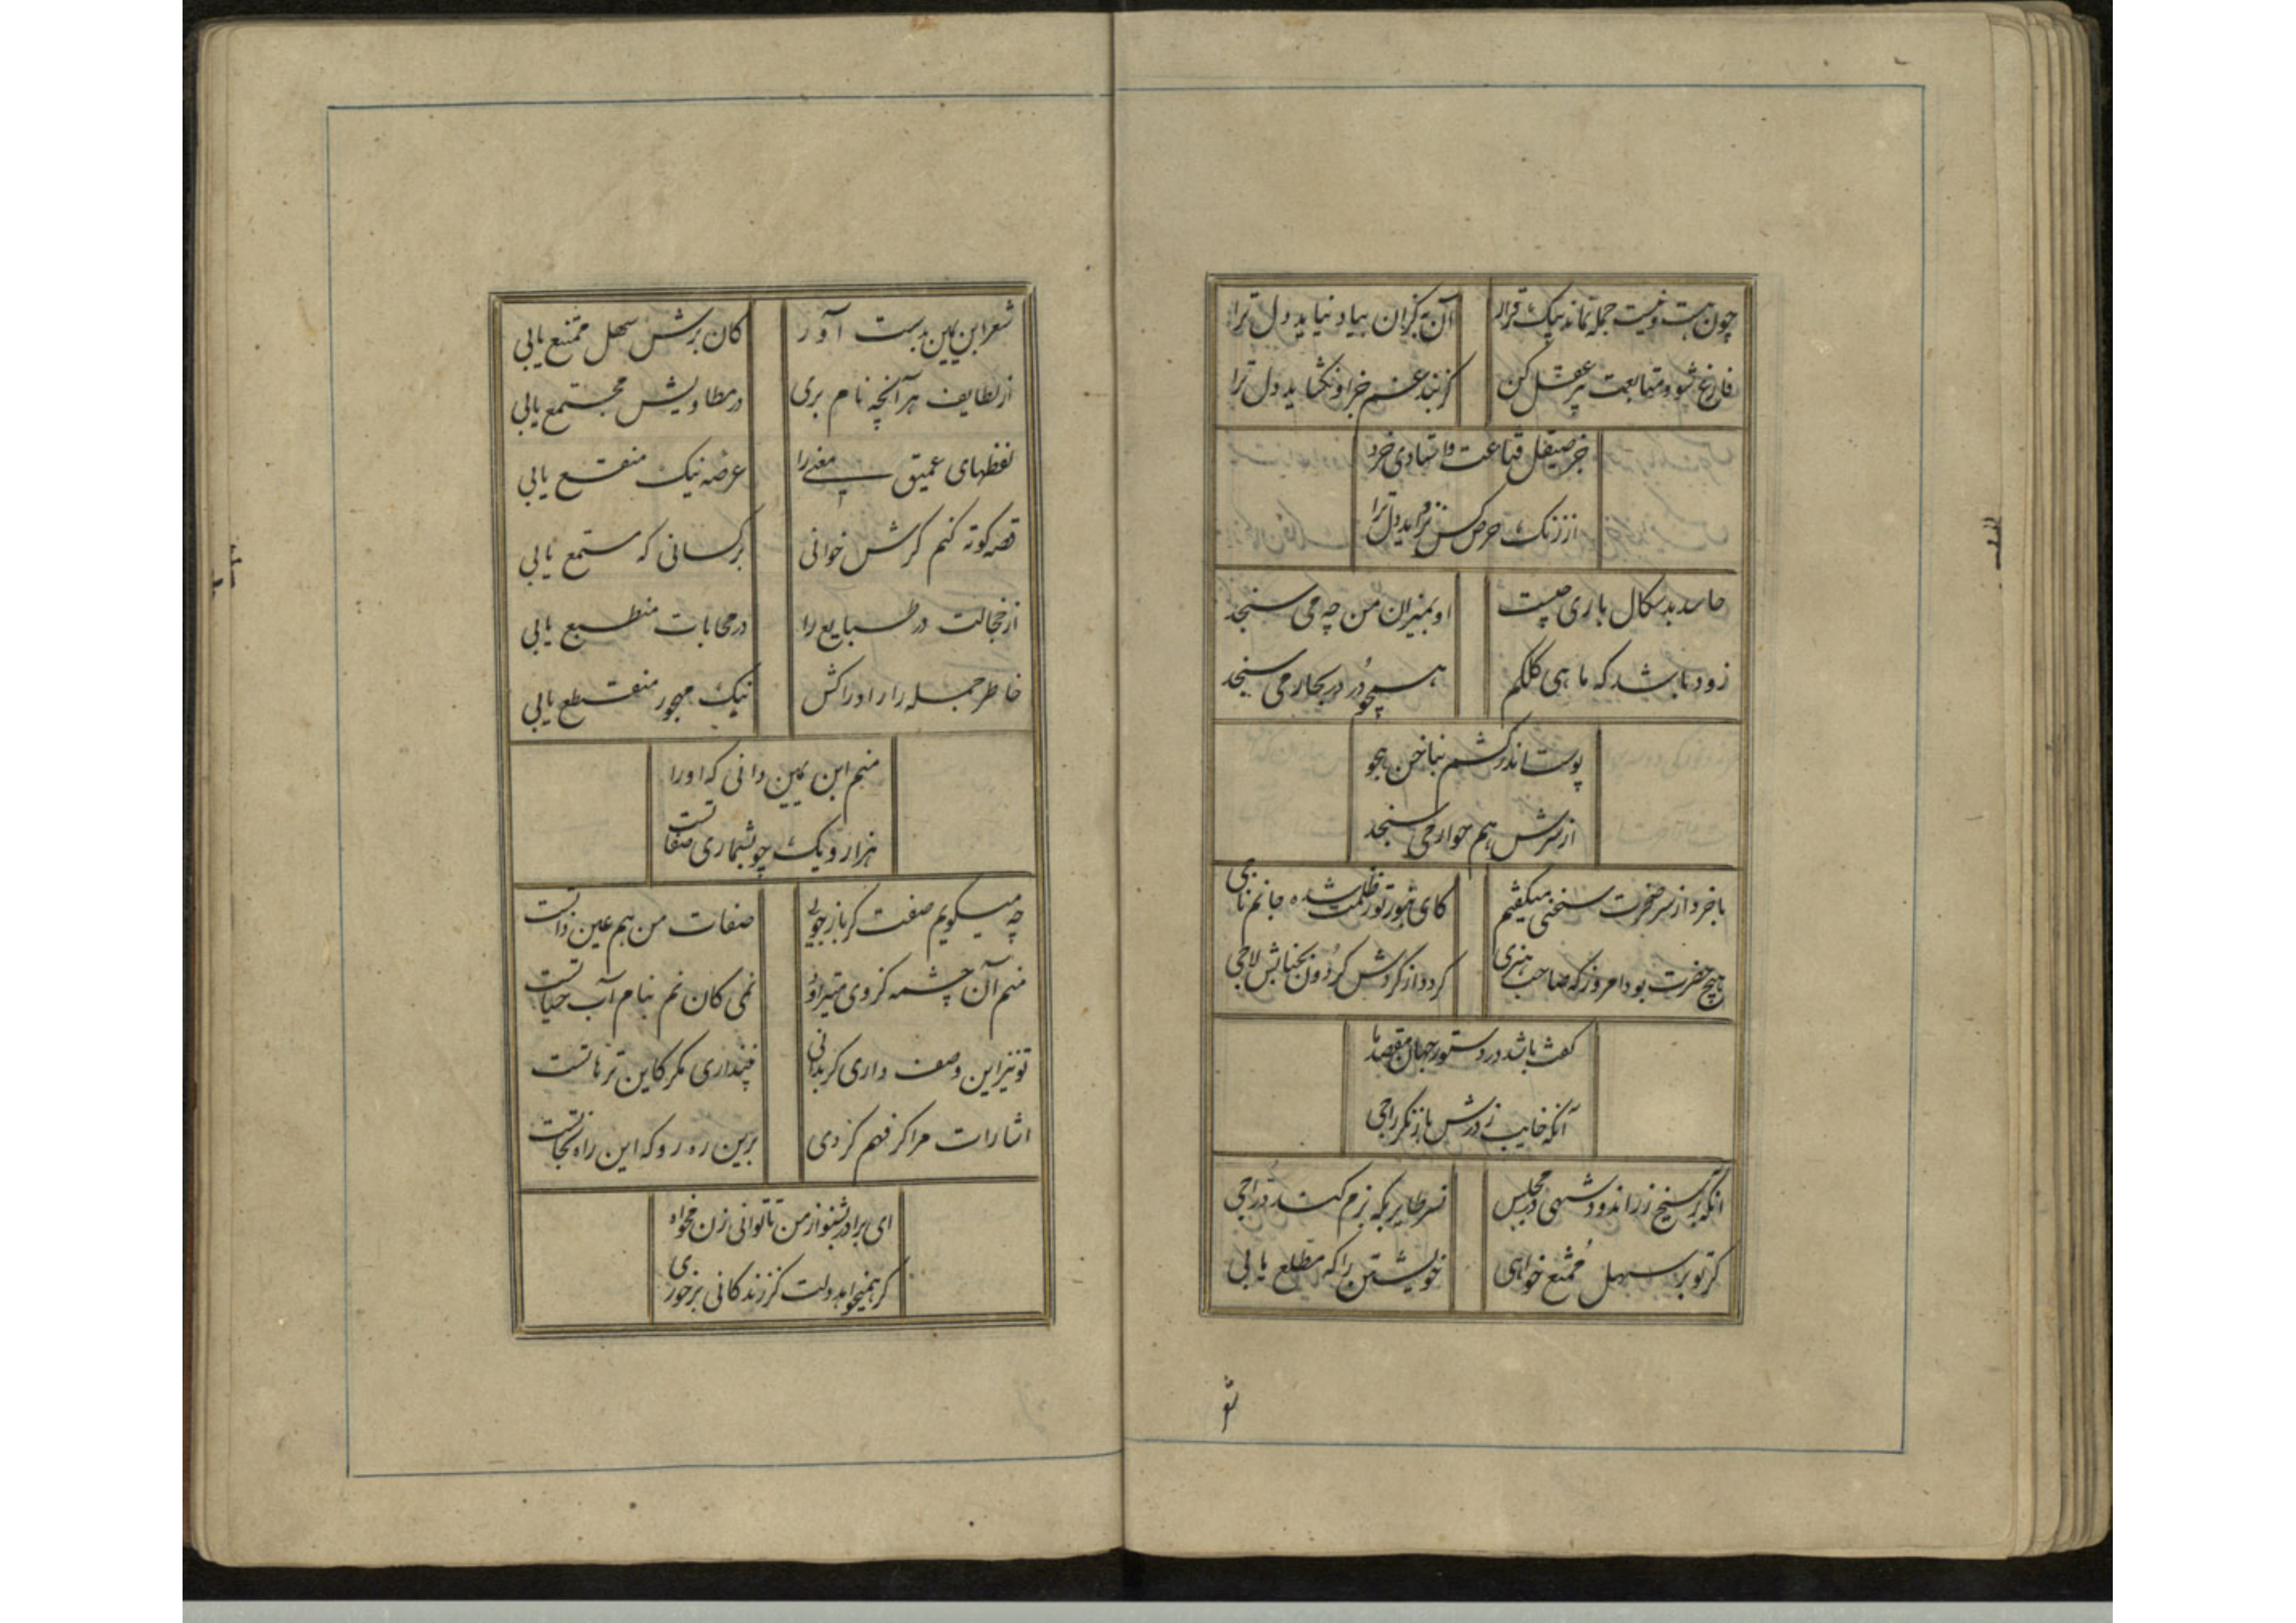 چون هست و نیست جمله نماند بیک قرار
آن به کزان بیاد نیاید دل ترا
فارغ شو و متابعت پیر عقل کن
کز بند غم جز او نگشاید دل ترا
جز صیقل قناعت و استادی خرد
از زنگ حرص کس نزداید دل ترا
حاسد بدسکال باری چیست
او بمیزان من چه می سنجد
زود باشد که ماهی کلکم
همچو در در بحار می سنجد
پوست اندر کشم بناخن هجو
از سرش هم چوار می سنجد
با خرد از سر ضجرت سخنی میگفتم
کای ز نور تو ز ظلمت شده جانم ناجی
هیچ حضرت بود امروز که صاحب هنری
گردد از گردش گردون بجنابش لاجی
گفت باشد در دستور جهان مقصد ما
آنکه خایب ز درش باز نگردد راجی
آنکه بر سیخ زر اندود شهی در مجلس
نسر طایر بگه بزم کند دراجی
گر تو بر سهل ممتنع خواهی
خویشتن را که مطلع یابی
تو
شعر ابن یمین بدست آور
کان برش سهل ممتنع یابی
از لطایف هر آنچه نام بری
در مطاویش مجتمع یابی
لفظهای عمیق معنی را
عرضه نیک متسع یابی
قصه کوته کنم گرش خوانی
بر کسانی که مستمع یابی
از خجالت در طبایع را
در محابات منطبع یابی
خاطر جمله را ز ادراکش
نیک مهجور منقطع یابی
منم ابن یمین دانی که او را
هزار و یک چو بشماری صفاتست
چه میگویم صفت گر باز جویی
صفات من هم عین ذاتست
منم آن چشمه کز وی میتراود
نمی کان نم بنام آب حیاتست
تو نیز این وصف داری گر بدانی
نپنداری مگر کاین ترهاتست
اشارات مرا گر فهم کردی
برین ره رو که این راه نجاتست
ای برادر بشنو از من تا توانی زن مخواه
گر همیخواهد دلت کز زندگانی برخوری